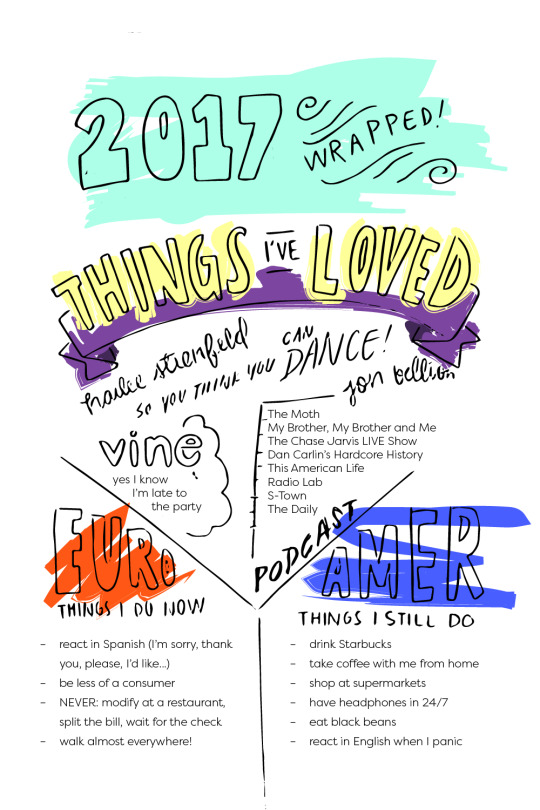 2017
WRAPPED!
THINGS I'VE LOVED
hailee stienfeld
SO YOU THINK YOU CAN DANCE!
jon bellion
vine
yes I know
I'm late to
the party
The Moth
My Brother, My Brother and Me
The Chase Jarvis LIVE Show
Dan Carlin's Hardcore History
This American Life
Radio Lab
S-Town
The Daily
PODCAST
EURO
THINGS I DO NOW
– react in Spanish (I'm sorry, thank
you, please, I'd like...)
– be less of a consumer
– NEVER: modify at a restaurant,
split the bill, wait for the check
– walk almost everywhere!
AMER
THINGS I STILL DO
– drink Starbucks
– take coffee with me from home
– shop at supermarkets
– have headphones in 24/7
– eat black beans
– react in English when I panic